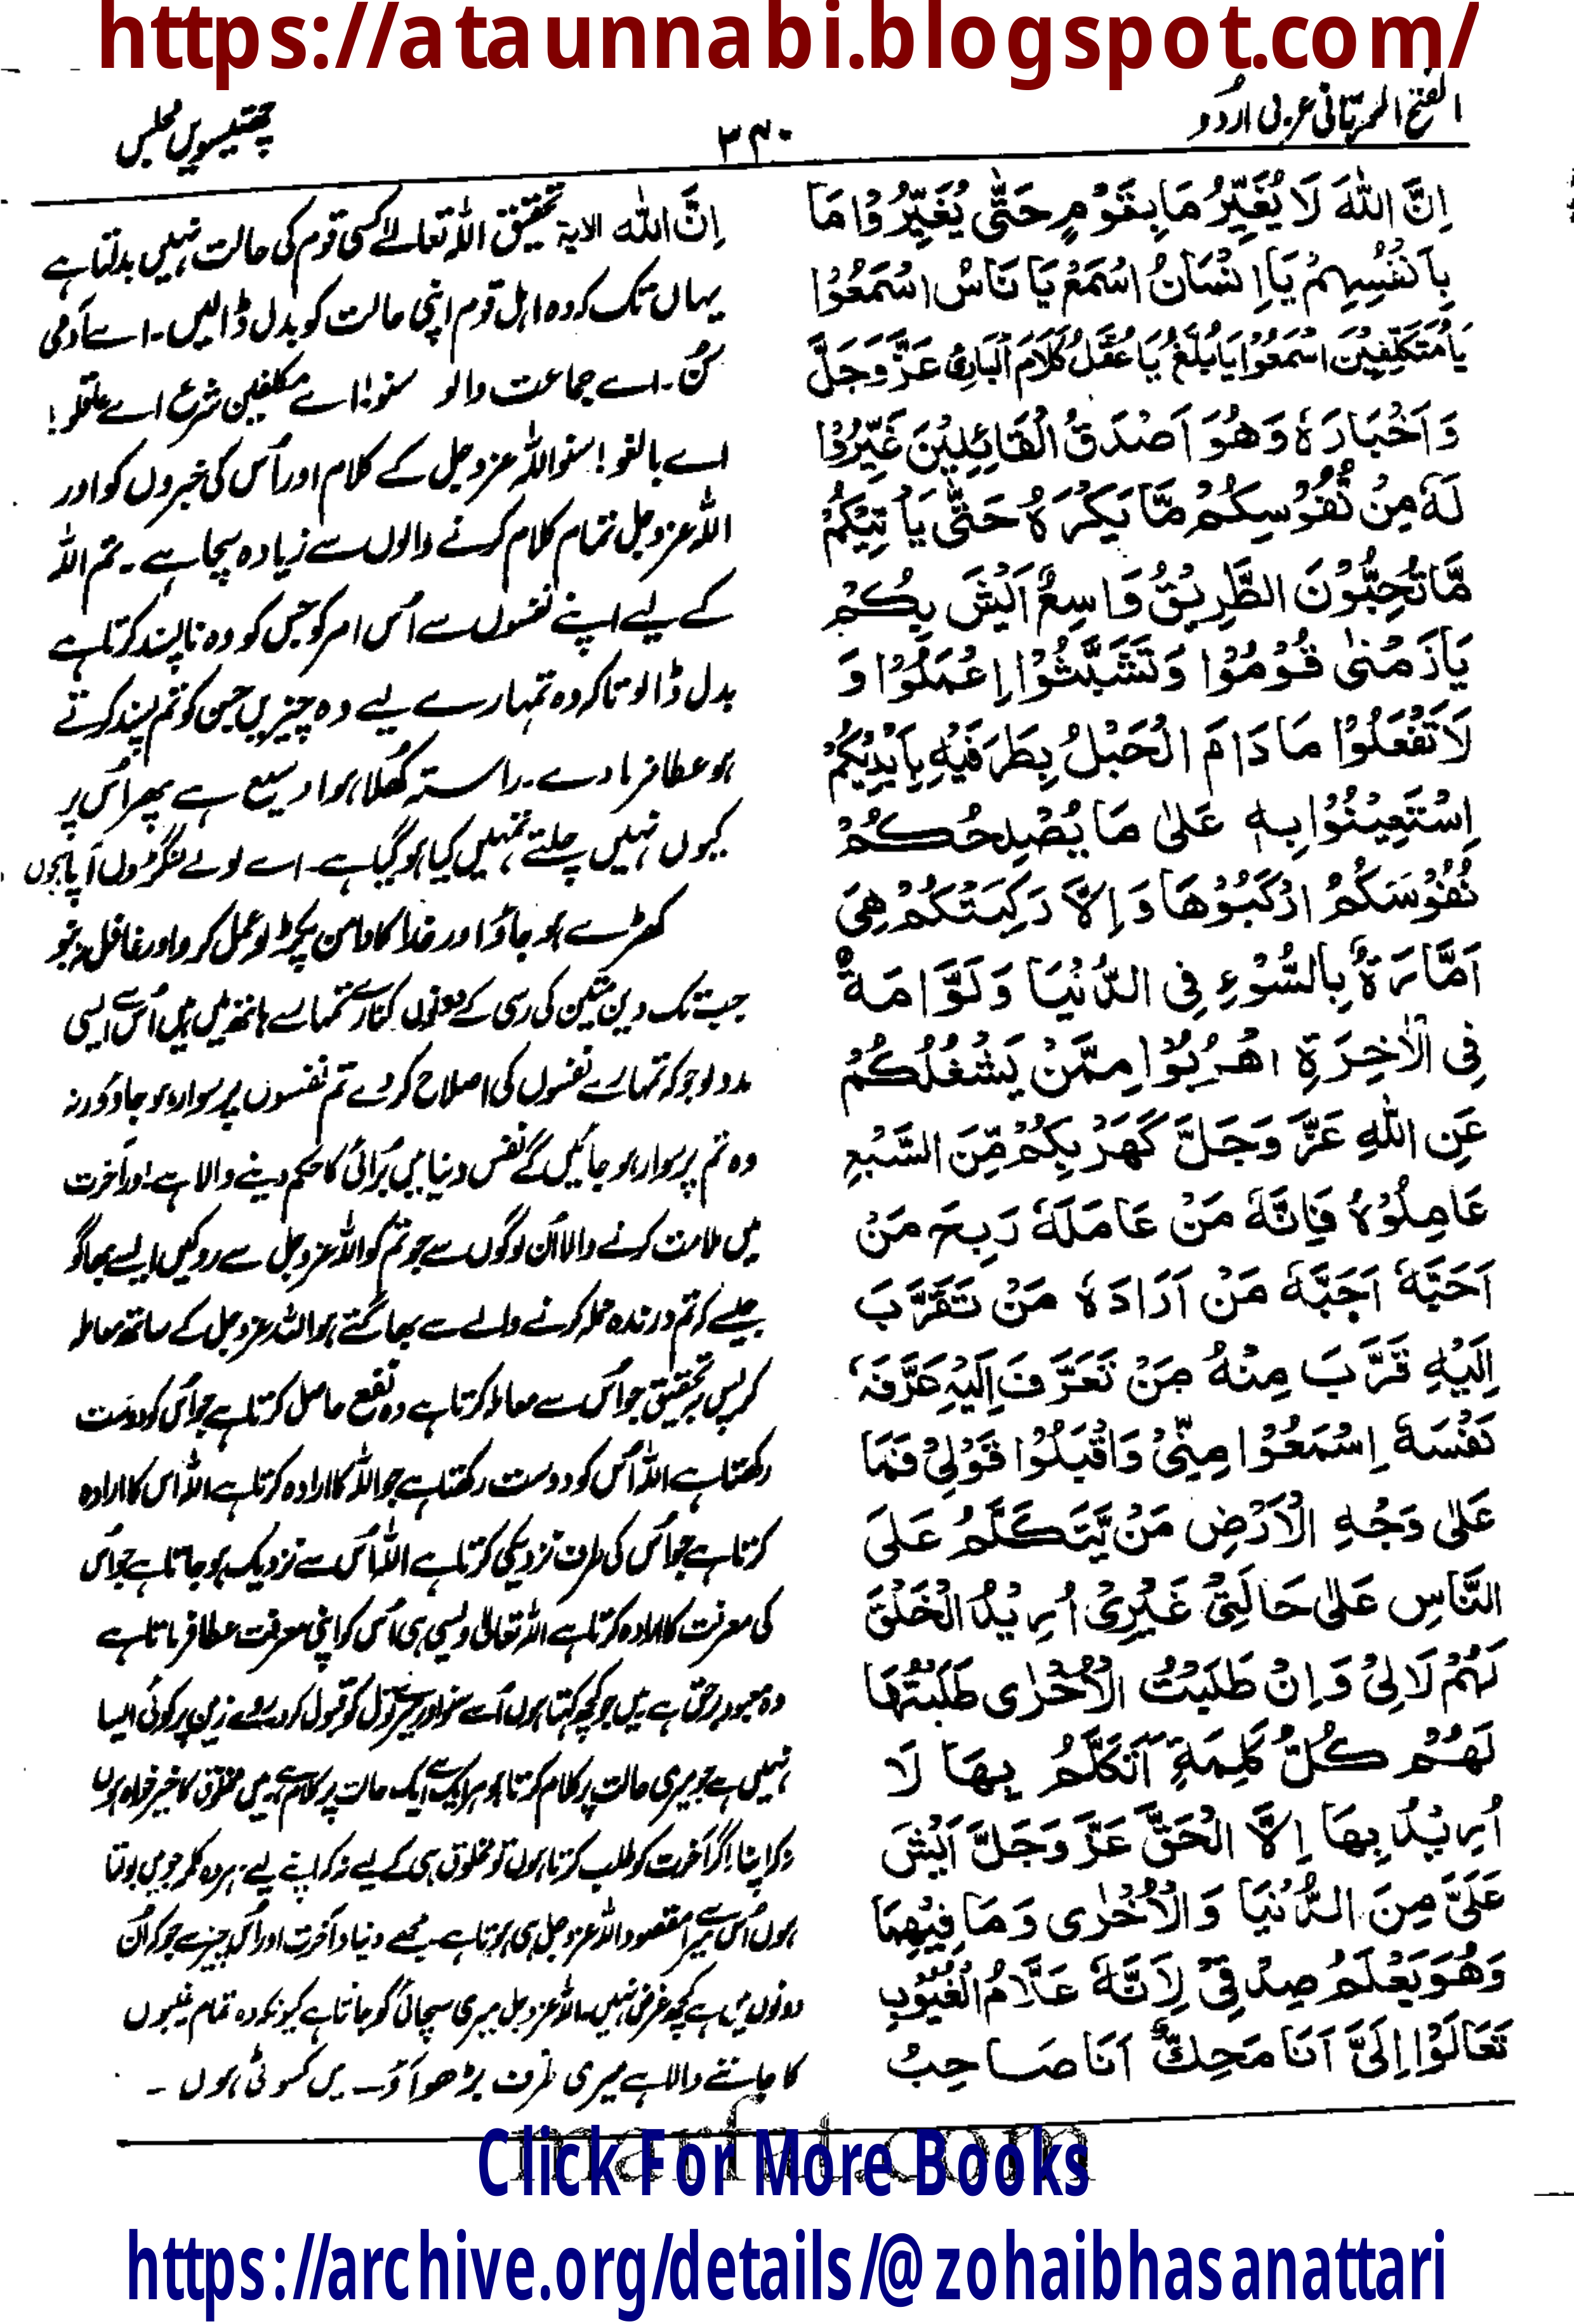 https://ataunnabi.blogspot.com/
الفتح الربانی عربی اردو
۳۴۰
چھتیسویں مجلس
اِنَّ اللّٰهَ لَا یُغَیِّرُ مَا بِقَوْمٍ حَتّٰی یُغَیِّرُوْا مَا
بِاَنْفُسِهِمْ یَا اِنْسَانُ اسْمَعْ یَا نَاسُ اسْمَعُوْا
یَا مُتَکَلِّفِیْنَ اسْمَعُوْا یَا بُلَّغُ یَا عُقَّلُ کَلَامَ الْبَارِئِ عَزَّ وَجَلَّ
وَ اَخْبَارَهٗ وَهُوَ اَصْدَقُ الْقَائِلِیْنَ غَیِّرُوْا
لَهٗ مِنْ نُّفُوْسِکُمْ مَّا یَکْرَهُ حَتّٰی یَاْتِیَکُمْ
مَّا تُحِبُّوْنَ الطَّرِیْقُ وَاسِعٌ اَیْشَ بِکُمْ
یَا زَمْنٰی قُوْمُوْا وَتَشَبَّثُوْا اِعْمَلُوْا وَ
لَا تَفْعَلُوْا مَا دَامَ الْحَبْلُ بِطَرَفَیْهِ بِاَیْدِیْکُمْ
اِسْتَعِیْنُوْا بِهٖ عَلٰی مَا یُصْلِحُکُمْ
نُفُوْسَکُمْ ارْکَبُوْهَا وَ اِلَّا رَکِبَتْکُمْ هِیَ
اَمَّارَةٌ بِالسُّوْءِ فِی الدُّنْیَا وَ لَوَّامَةٌ
فِی الْاٰخِرَةِ اهْرُبُوْا مِمَّنْ یَشْغُلُکُمْ
عَنِ اللّٰهِ عَزَّ وَجَلَّ کَهَرْبِکُمْ مِّنَ السَّبُعِ
عَامِلُوْهُ فَاِنَّهٗ مَنْ عَامَلَهٗ رَبِحَ مَنْ
اَحَبَّهٗ اَحَبَّهٗ مَنْ اَرَادَهٗ مَنْ تَقَرَّبَ
اِلَیْهِ قَرَّبَ مِنْهُ مَنْ تَعَرَّفَ اِلَیْهِ عَرَّفَهٗ
نَفْسَهٗ اِسْمَعُوْا مِنِّیْ وَاقْبَلُوْا قَوْلِیْ فَمَا
عَلٰی وَجْهِ الْاَرْضِ مَنْ یَّتَکَلَّمُ عَلَی
النَّاسِ عَلٰی حَالَتِیْ غَیْرِیْ اُرِیْدُ الْخَلْقَ
لَهُمْ لَا لِیْ وَ اِنْ طَلَبْتُ الْاُخْرٰی طَلَبْتُهَا
لَهُمْ کُلُّ کَلِمَةٍ اَتَکَلَّمُ بِهَا لَا
اُرِیْدُ بِهَا اِلَّا الْحَقَّ عَزَّ وَجَلَّ اَیْشَ
عَلَیَّ مِنَ الدُّنْیَا وَ الْاُخْرٰی وَ مَا فِیْهِمَا
وَهُوَ یَعْلَمُ صِدْقِیْ لِاَنَّهٗ عَلَّامُ الْغُیُوْبِ
تَعَالَوْا اِلَیَّ اَنَا مَحِکٌّ اَنَا صَاحِبُ
اِنَّ اللّٰه الایة تحقیق اللہ تعالےٰ کسی قوم کی حالت نہیں بدلتا ہے
یہاں تک کہ وہ اہل قوم اپنی حالت کو بدل ڈالیں۔ اے آدمی
سُن۔ اے جماعت والو سنو! اے مکلفین شرع اے عاقلو!
اے بالغو! سنو اللہ عزوجل کے کلام اور اُس کی خبروں کو اور
اللہ عزوجل تمام کلام کرنے والوں سے زیادہ سچا ہے۔ تم اللہ
کے لیے اپنے نفسوں سے اُس امر کو جس کو وہ ناپسند کرتا ہے
بدل ڈالو تاکہ وہ تمہارے لیے وہ چیزیں جن کو تم پسند کرتے
ہو عطا فرمادے۔ راستہ کُھلا ہوا وسیع ہے پھر اُس پر
کیوں نہیں چلتے تمہیں کیا ہو گیا ہے۔ اے لولے لنگڑوں اپاہجوں
کھڑے ہو جاؤ اور خدا کا دامن پکڑ لو عمل کرو اور غافل نہ بنو
جب تک دین متین کی رسی کے دونوں کنارے تمہارے ہاتھ میں ہیں اُس سے ایسی
مدد لو جو کہ تمہارے نفسوں کی اصلاح کر دے تم نفسوں پر سوار ہو جاؤ ورنہ
وہ تم پر سوار ہو جائیں گے نفس دنیا میں بُرائی کا حکم دینے والا ہے اور آخرت
میں ملامت کرنے والا اُن لوگوں سے جو تم کو اللہ عزوجل سے روکیں ایسے بھاگو
جیسے کہ تم درندہ حملہ کرنے والے سے بھاگتے ہو اللہ عزوجل کے ساتھ معاملہ
کر پس بتحقیق جو اُس سے معاملہ کرتا ہے وہ نفع حاصل کرتا ہے جو اُس کو دوست
رکھتا ہے اللہ اُس کو دوست رکھتا ہے جو اللہ کا ارادہ کرتا ہے اللہ اس کا ارادہ
کرتا ہے جو اُس کی طرف نزدیکی کرتا ہے اللہ اُس سے نزدیک ہو جاتا ہے جو اُس
کی معرفت کا ارادہ کرتا ہے اللہ تعالیٰ ویسی ہی اُس کو اپنی معرفت عطا فرماتا ہے
وہ معبود برحق ہے میں جو کچھ کہتا ہوں اُسے سنو اور میرے قول کو قبول کرو روئے زمین پر کوئی ایسا
نہیں ہے جو میری حالت پر کلام کرتا ہو ہر ایک سے ایک حالت پر کلام ہے میں مخلوق کا خیر خواہ ہوں
نہ کہ اپنا اگر آخرت کو طلب کرتا ہوں تو مخلوق ہی کے لیے نہ کہ اپنے لیے ہر وہ کلمہ جو میں بولتا
ہوں اُس سے میرا مقصود اللہ عزوجل ہی ہوتا ہے مجھے دنیا و آخرت اور اُس چیز سے جو کہ اُن
دونوں میں ہے کچھ غرض نہیں اللہ عزوجل میری سچائی کو جانتا ہے کیونکہ وہ تمام غیبوں
کا جاننے والا ہے میری طرف بڑھو آؤ میں کسوٹی ہوں۔
marfat.com
Click For More Books
https://archive.org/details/@zohaibhasanattari